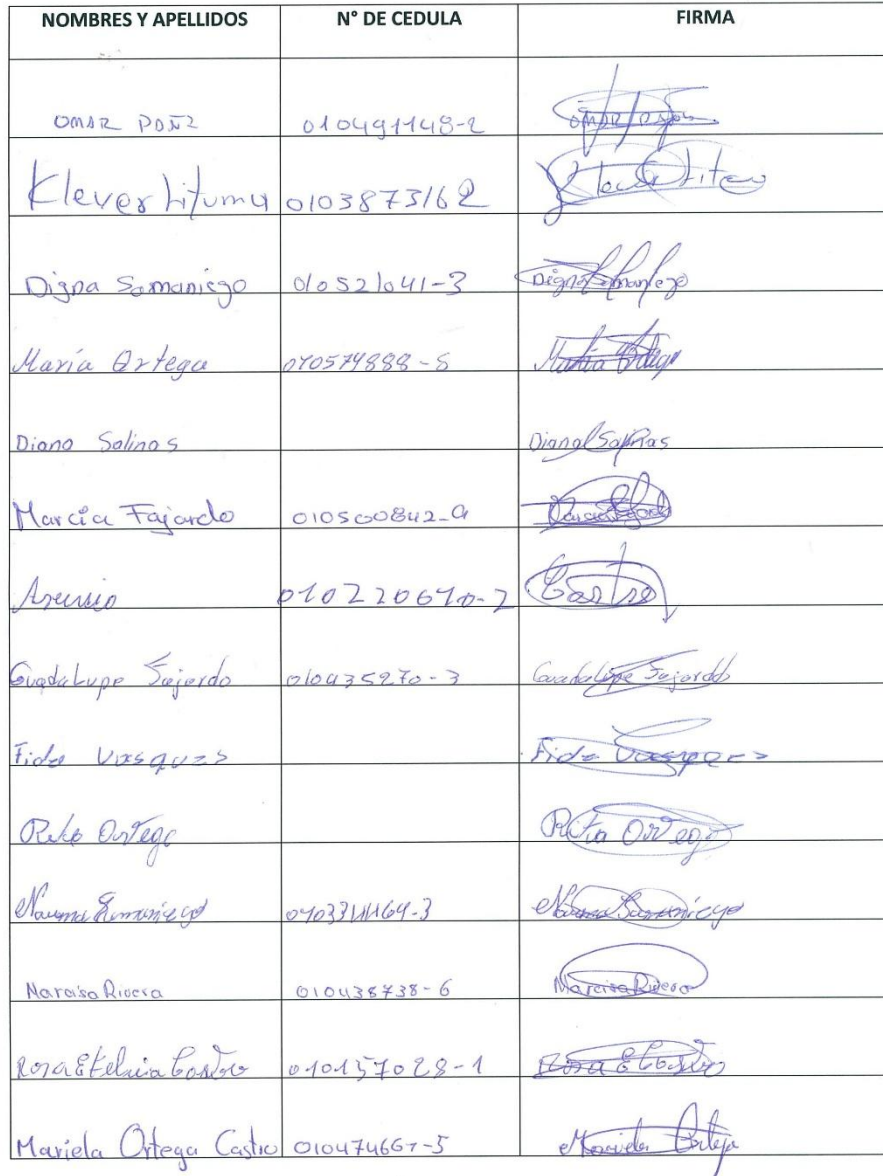 NOMBRES Y APELLIDOS N° DE CEDULA FIRMA
OMAR 010491148-2
Klever Litumu 0103873162
Digna Samaniego 010521041-3 Digna Samaniego
María Ortega 010574888-8 María Ortega
Diana Salinas Diana Salinas
Marcia Fajardo Marcia Fajardo
010220670-2 Castro
Guadalupe Fajardo 010435270-3 Guadalupe Fajardo
Vasquez
Rita Ortega Rita Ortega
Samaniego Samaniego
Narcisa Rivera 010438738-6 Narcisa Rivera
Rosa Etelvia Castro 010157028-1 Rosa E Castro
Mariela Ortega Castro 010474667-5 Mariela Ortega